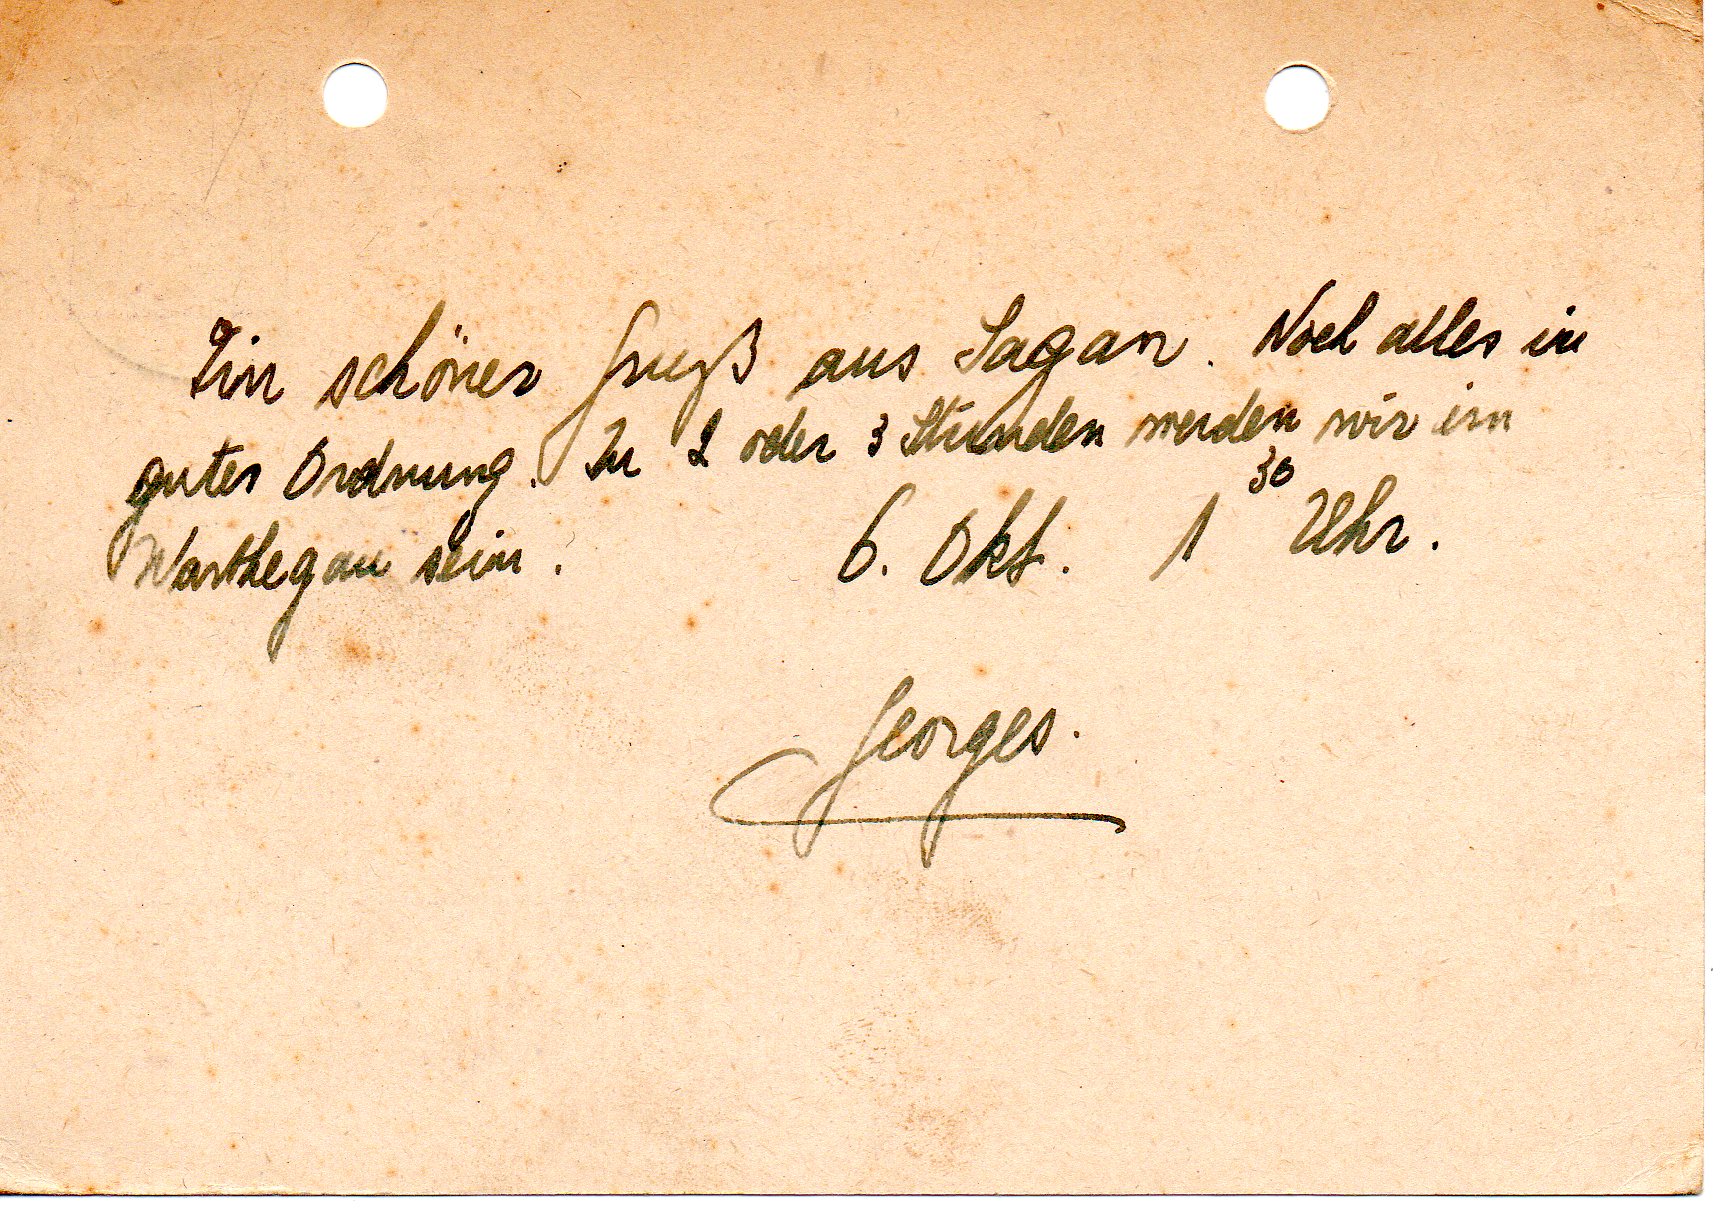 Ein schöner Gruß aus Sagan. Noch alles in
guter Ordnung. In 2 oder 3 Stunden werden wir im
Warthegau sein. 6. Okt. 1 30 Uhr.
Georges.